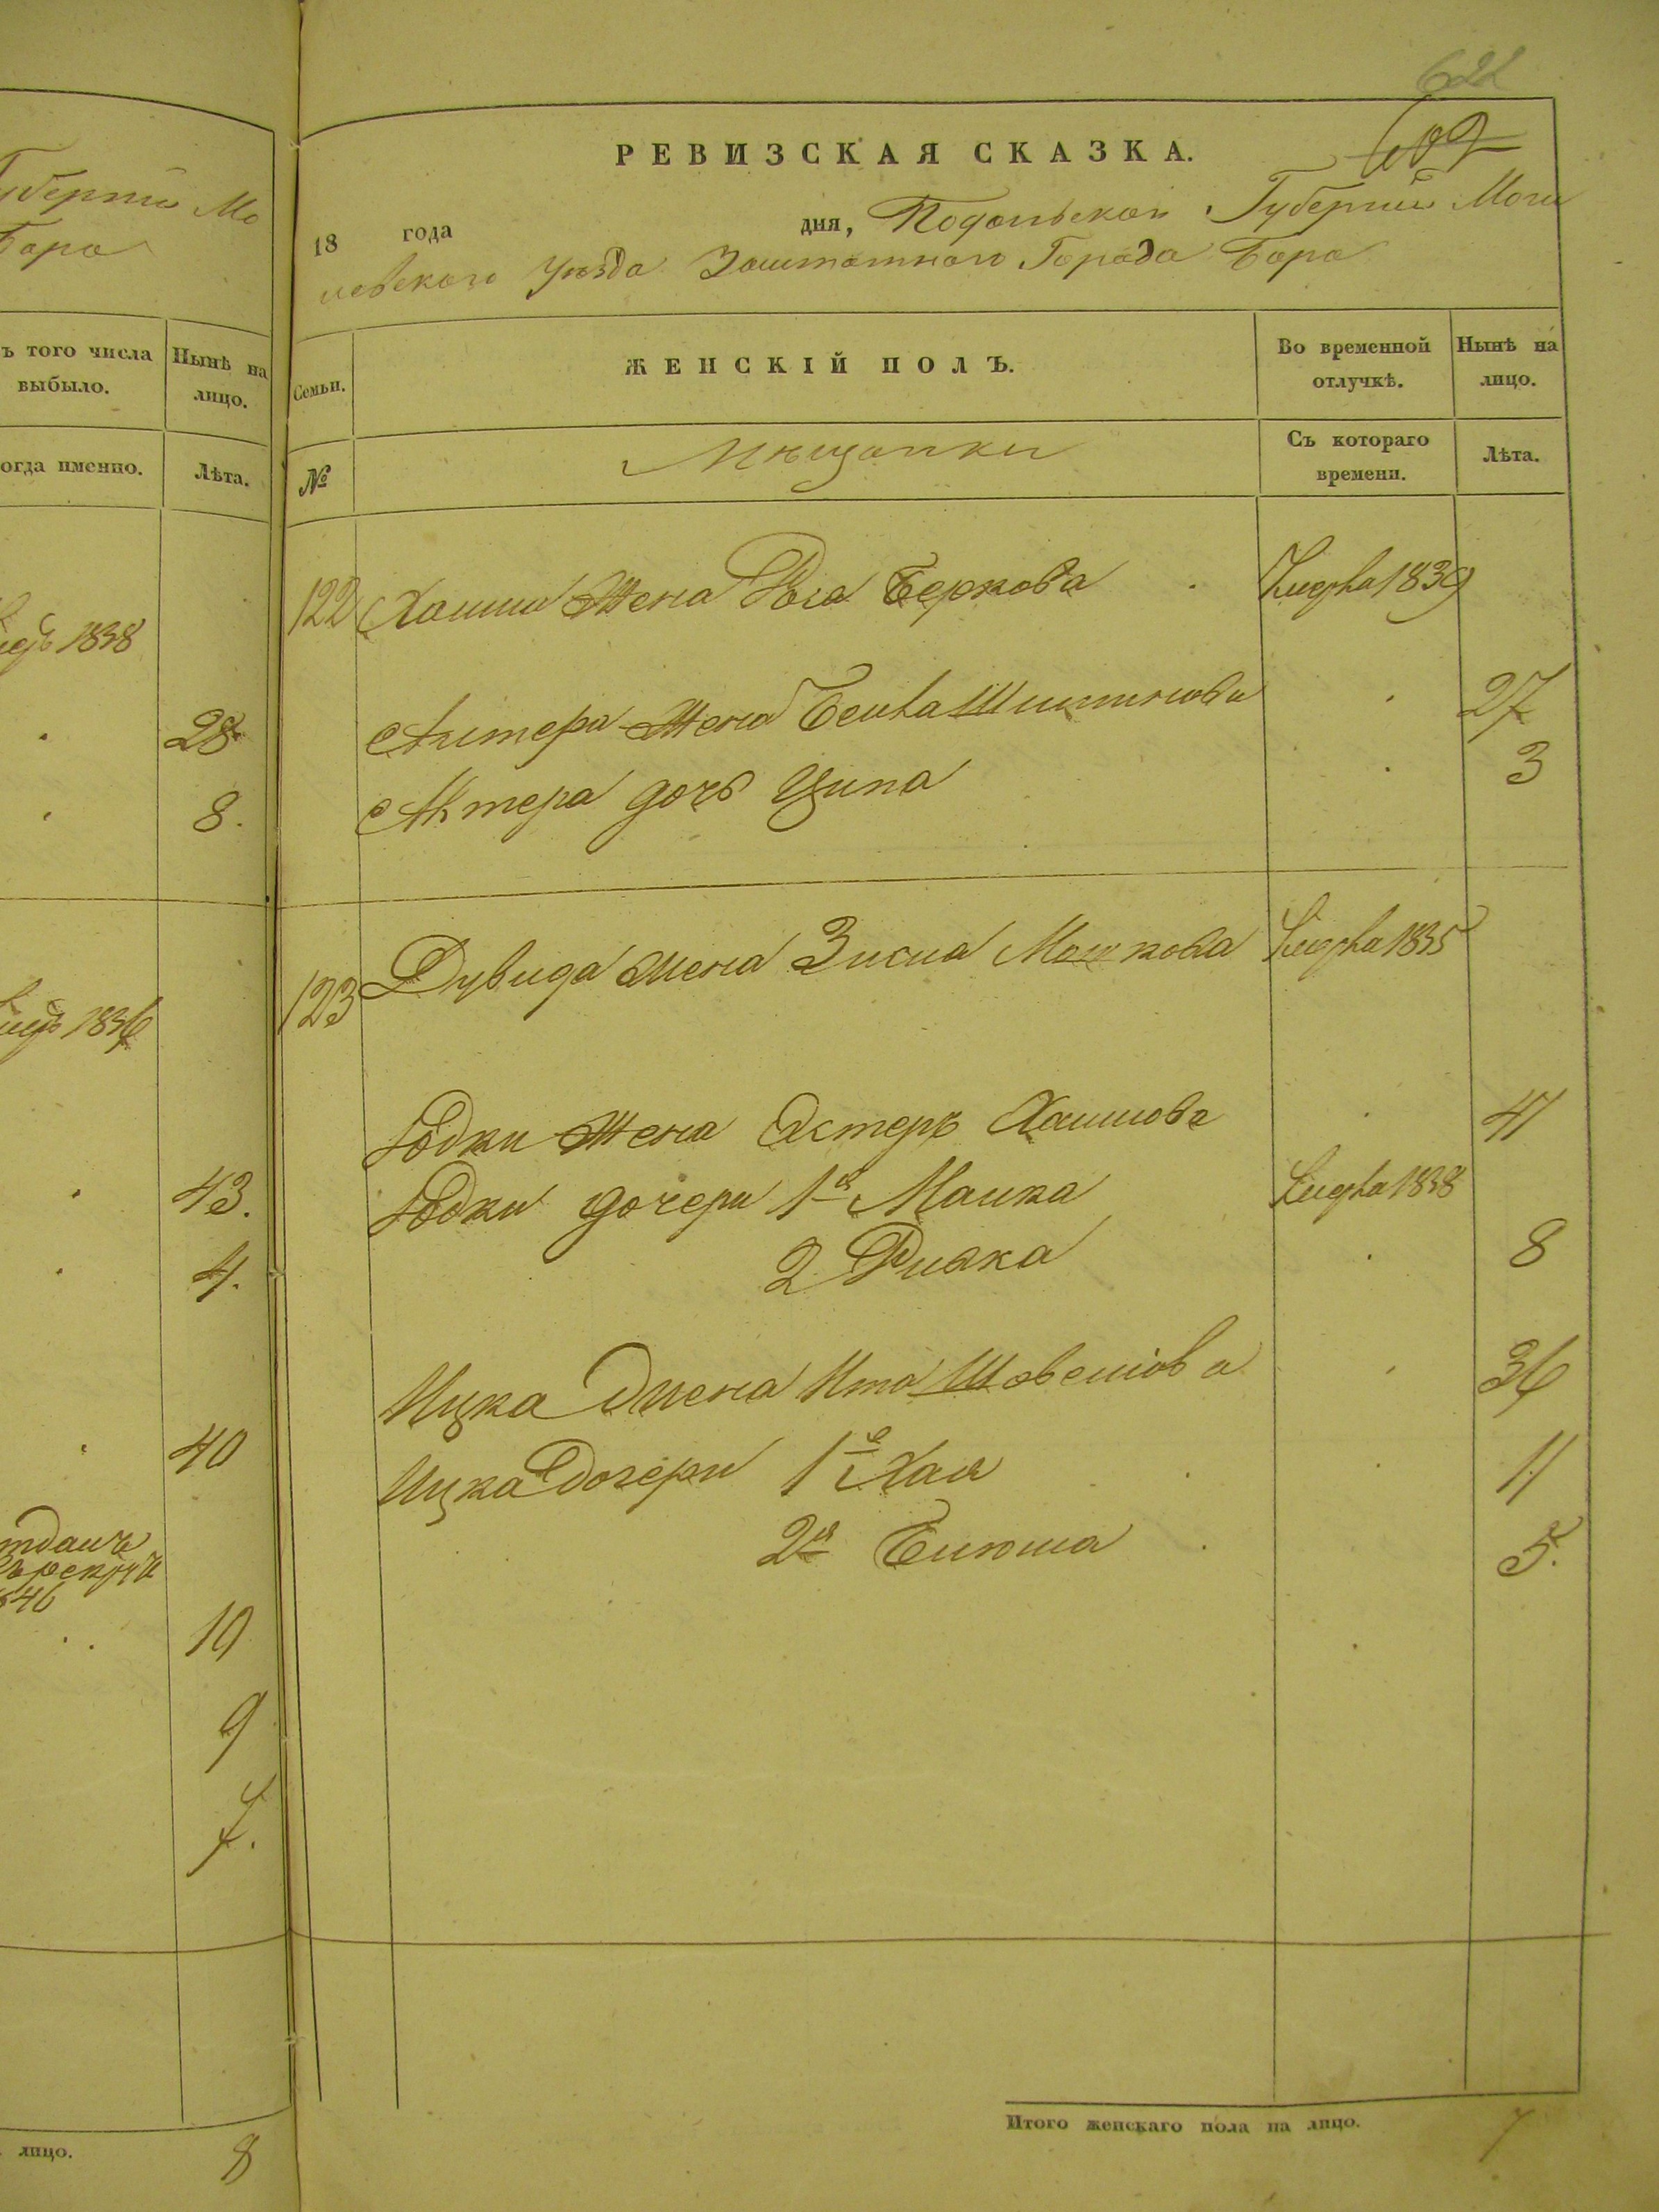 уберніи Мо
Бара
ъ того числа выбыло.
Нынѣ на лицо.
огда именно.
Лѣта.
1838
28
8.
1836
43.
4.
40
тданъ
въ рекруты
1846
10
9
7.
лицо.
8
622
609
РЕВИЗСКАЯ СКАЗКА.
18 года дня, Подольской Губерніи Моги
левского Уѣзда Заштатного Города Бара
Семьи.
ЖЕНСКІЙ ПОЛЪ.
Во временной отлучкѣ.
Нынѣ на лицо.
№
Мѣщанки
Съ котораго времени.
Лѣта.
122 Хаима Жена Рося Беркова умерла 1839
Жена Бейла 27
дочь Ципа 3
123 Дувида жена Зисля Мошкова умерла 1835
Юдки Жена Эстеръ Хаимова 41
Юдки дочери 1я Малка умерла 1838
2 Ривка 8
Ицка жена Ита 36
Ицка дочери 1я Хая 11
2я 5.
Итого женскаго пола на лицо. 7